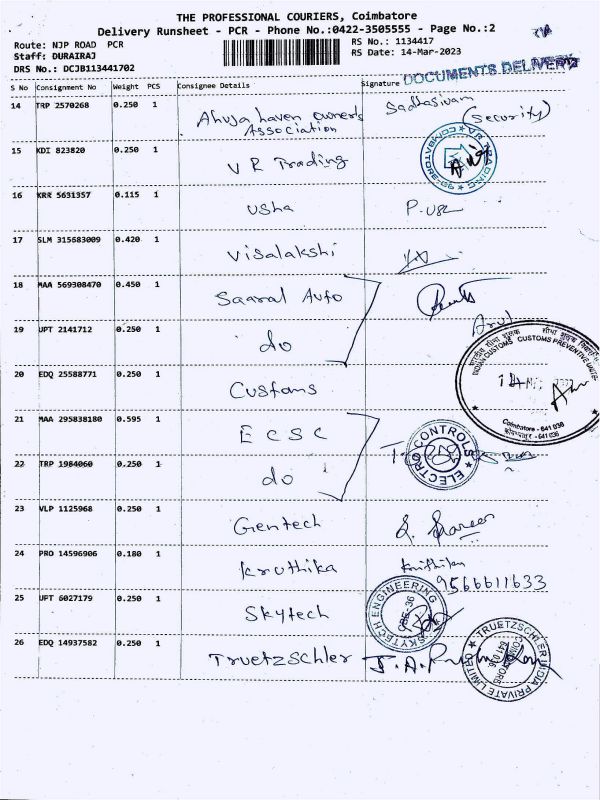 THE PROFESSIONAL COURIERS, Coimbatore
Delivery Runsheet - PCR - Phone No.:0422-3505555 - Page No.:2
Route: NJP ROAD PCR
Staff: DURAIRAJ
DRS No.: DCJB113441702
RS No.: 1134417
RS Date: 14-Mar-2023
DOCUMENTS DELIVERY
S No Consignment No Weight PCS Consignee Details Signature
14 TRP 2570268 0.250 1 Ahuja haven owner's Association Sadhasivam (Security)
15 KDI 823820 0.250 1 V R Trading
16 KRR 5631357 0.115 1 Usha P. Usha
17 SLM 315683009 0.420 1 Visalakshi
18 MAA 569308470 0.450 1 Saaral Auto
19 UPT 2141712 0.250 1 do Arul
INDIAN CUSTOMS CUSTOMS PREVENTIVE UNIT
Coimbatore - 641 036
20 EDQ 25588771 0.250 1 Customs
21 MAA 295838180 0.595 1 E C S C
ELECTRO CONTROLS
22 TRP 1984060 0.250 1 do
23 VLP 1125968 0.250 1 Gentech
24 PRO 14596906 0.180 1 Kruthika
9566611633
25 UFT 6027179 0.250 1 Skytech
SKYTECH ENGINEERING
CBE-36
26 EDQ 14937582 0.250 1 Truetzschler
TRUETZSCHLER INDIA PRIVATE LIMITED
COIMBATORE
641 036